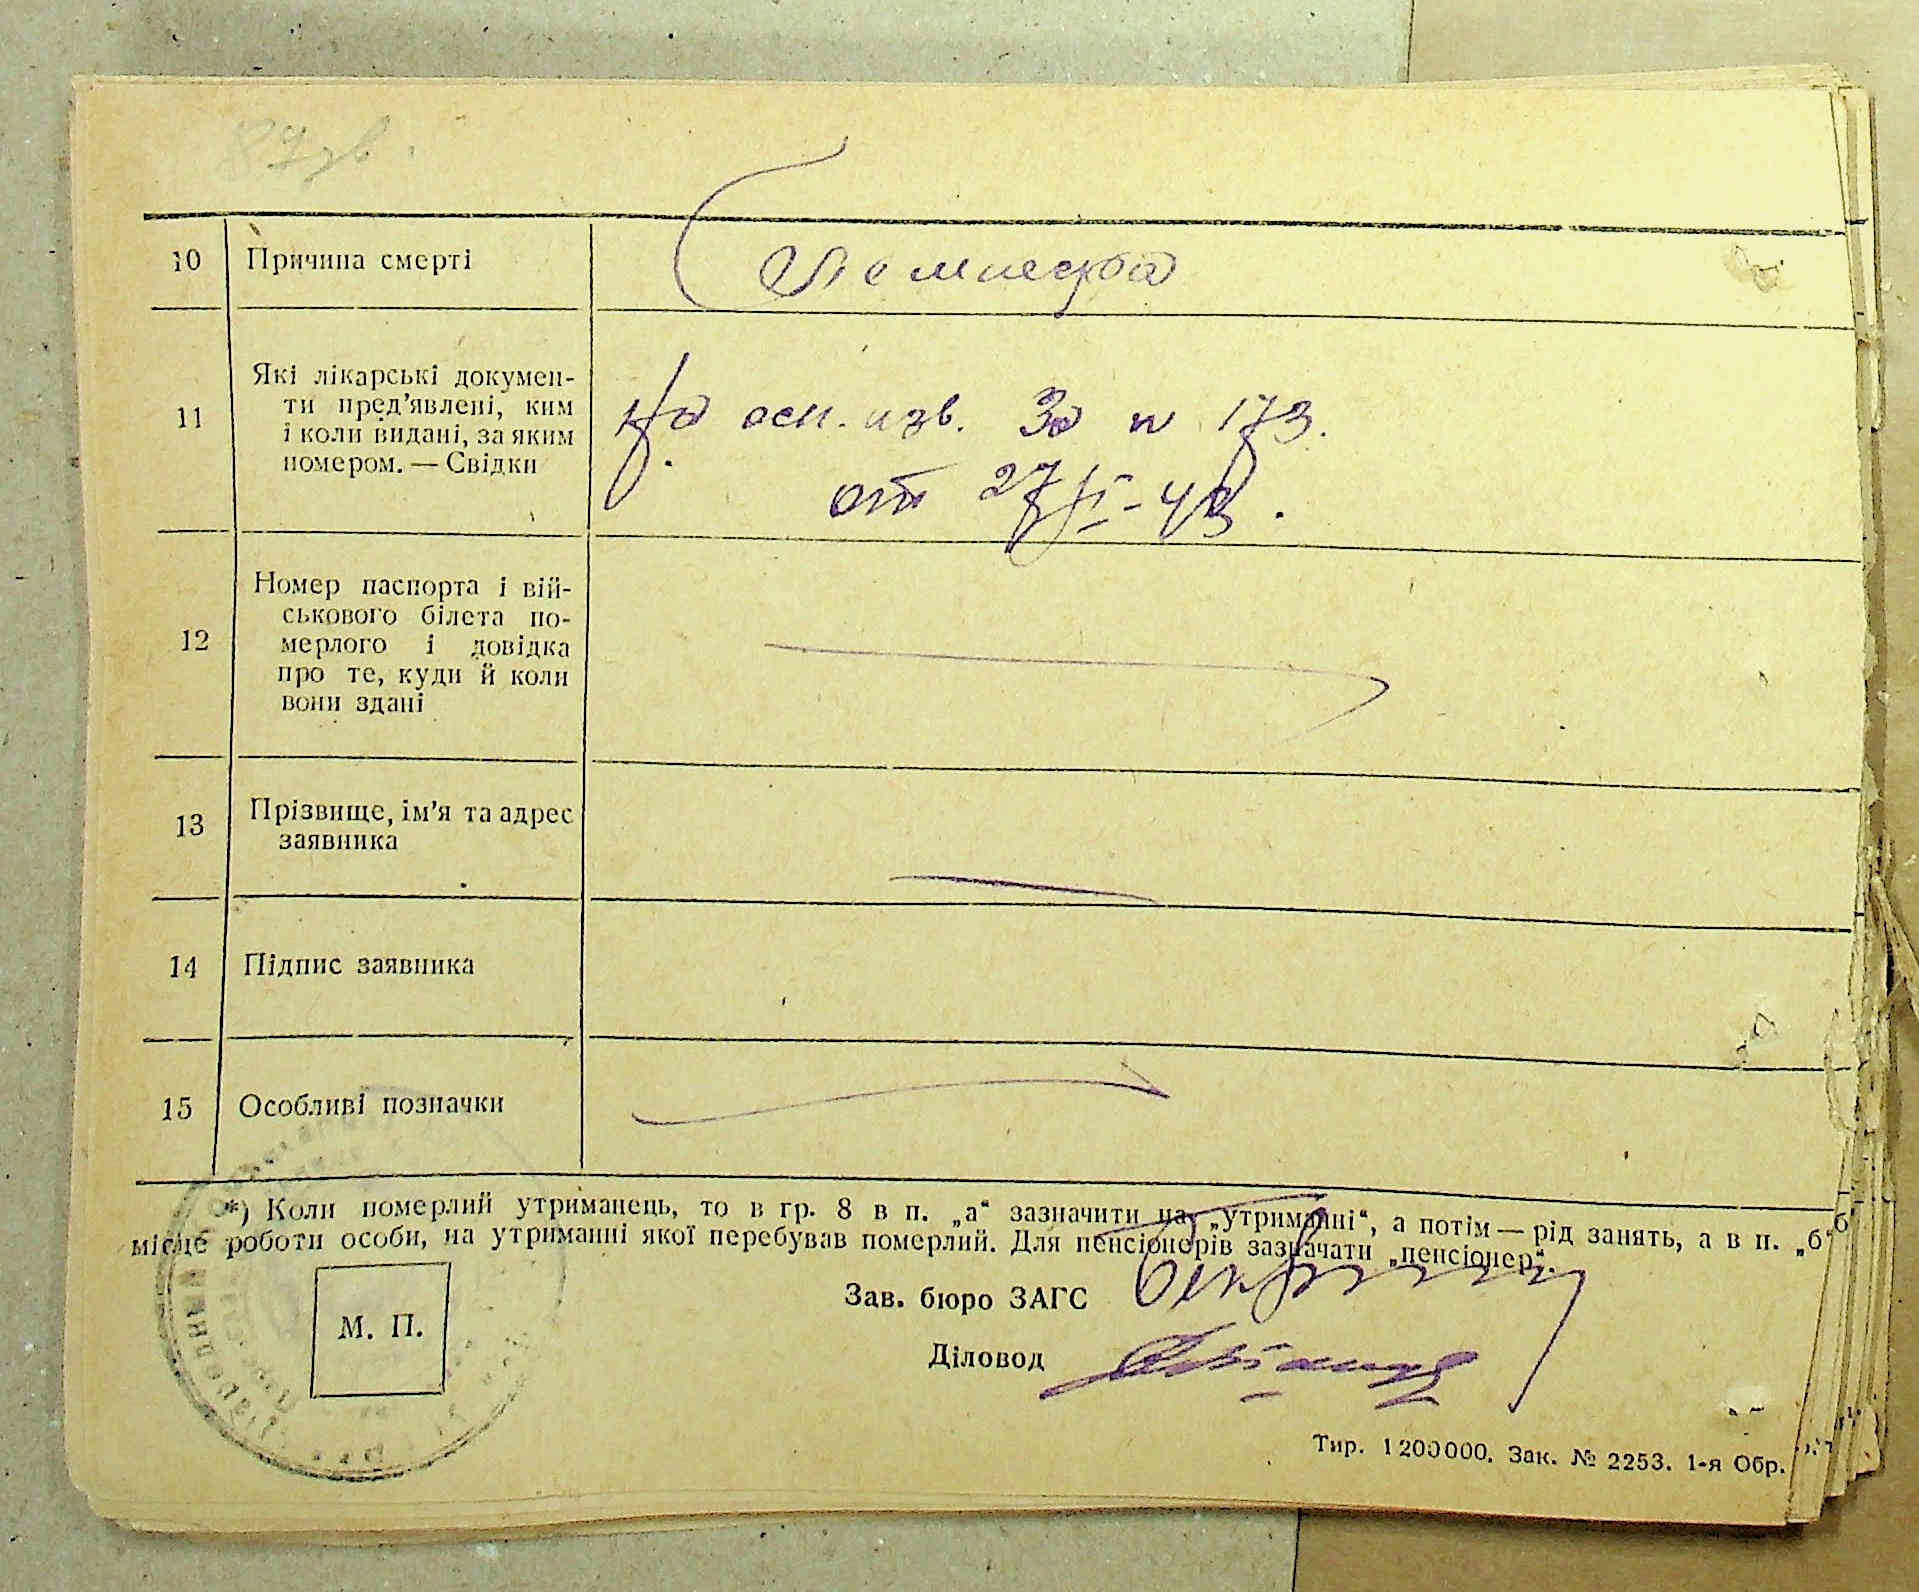 87 зв.
10 Причина смерті
11 Які лікарські документи пред'явлені, ким
і коли видані, за яким
номером. — Свідки
На осн. изв. За № 173.
от 27/
12 Номер паспорта і вій-
ськового білета по-
мерлого і довідка
про те, куди й коли
вони здані
13 Прізвище, ім'я та адрес
заявника
14 Підпис заявника
15 Особливі позначки
*) Коли померлий утриманець, то в гр. 8 в п. „а“ зазначити на „утриманні“, а потім — рід занять, а в п. „б“
місце роботи особи, на утриманні якої перебував померлий. Для пенсіонерів зазначати „пенсіонер“.
М. П.
Зав. бюро ЗАГС
Діловод
Тир. 1200000. Зак. № 2253. 1-я Обр.